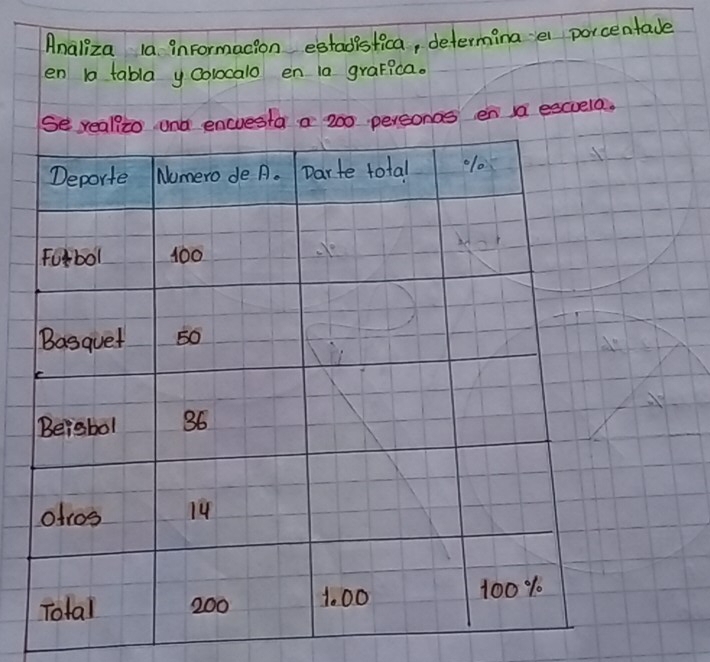 Analiza la informacion estadistica, determina el porcentaje
en la tabla y colocalo en la grafica.
Se realizo una encuesta a 200 personas en la escuela.
Deporte Numero de A. Parte total %
Futbol 100
Basquet 50
Beisbol 36
Otros 14
Total 200 1.00 100%